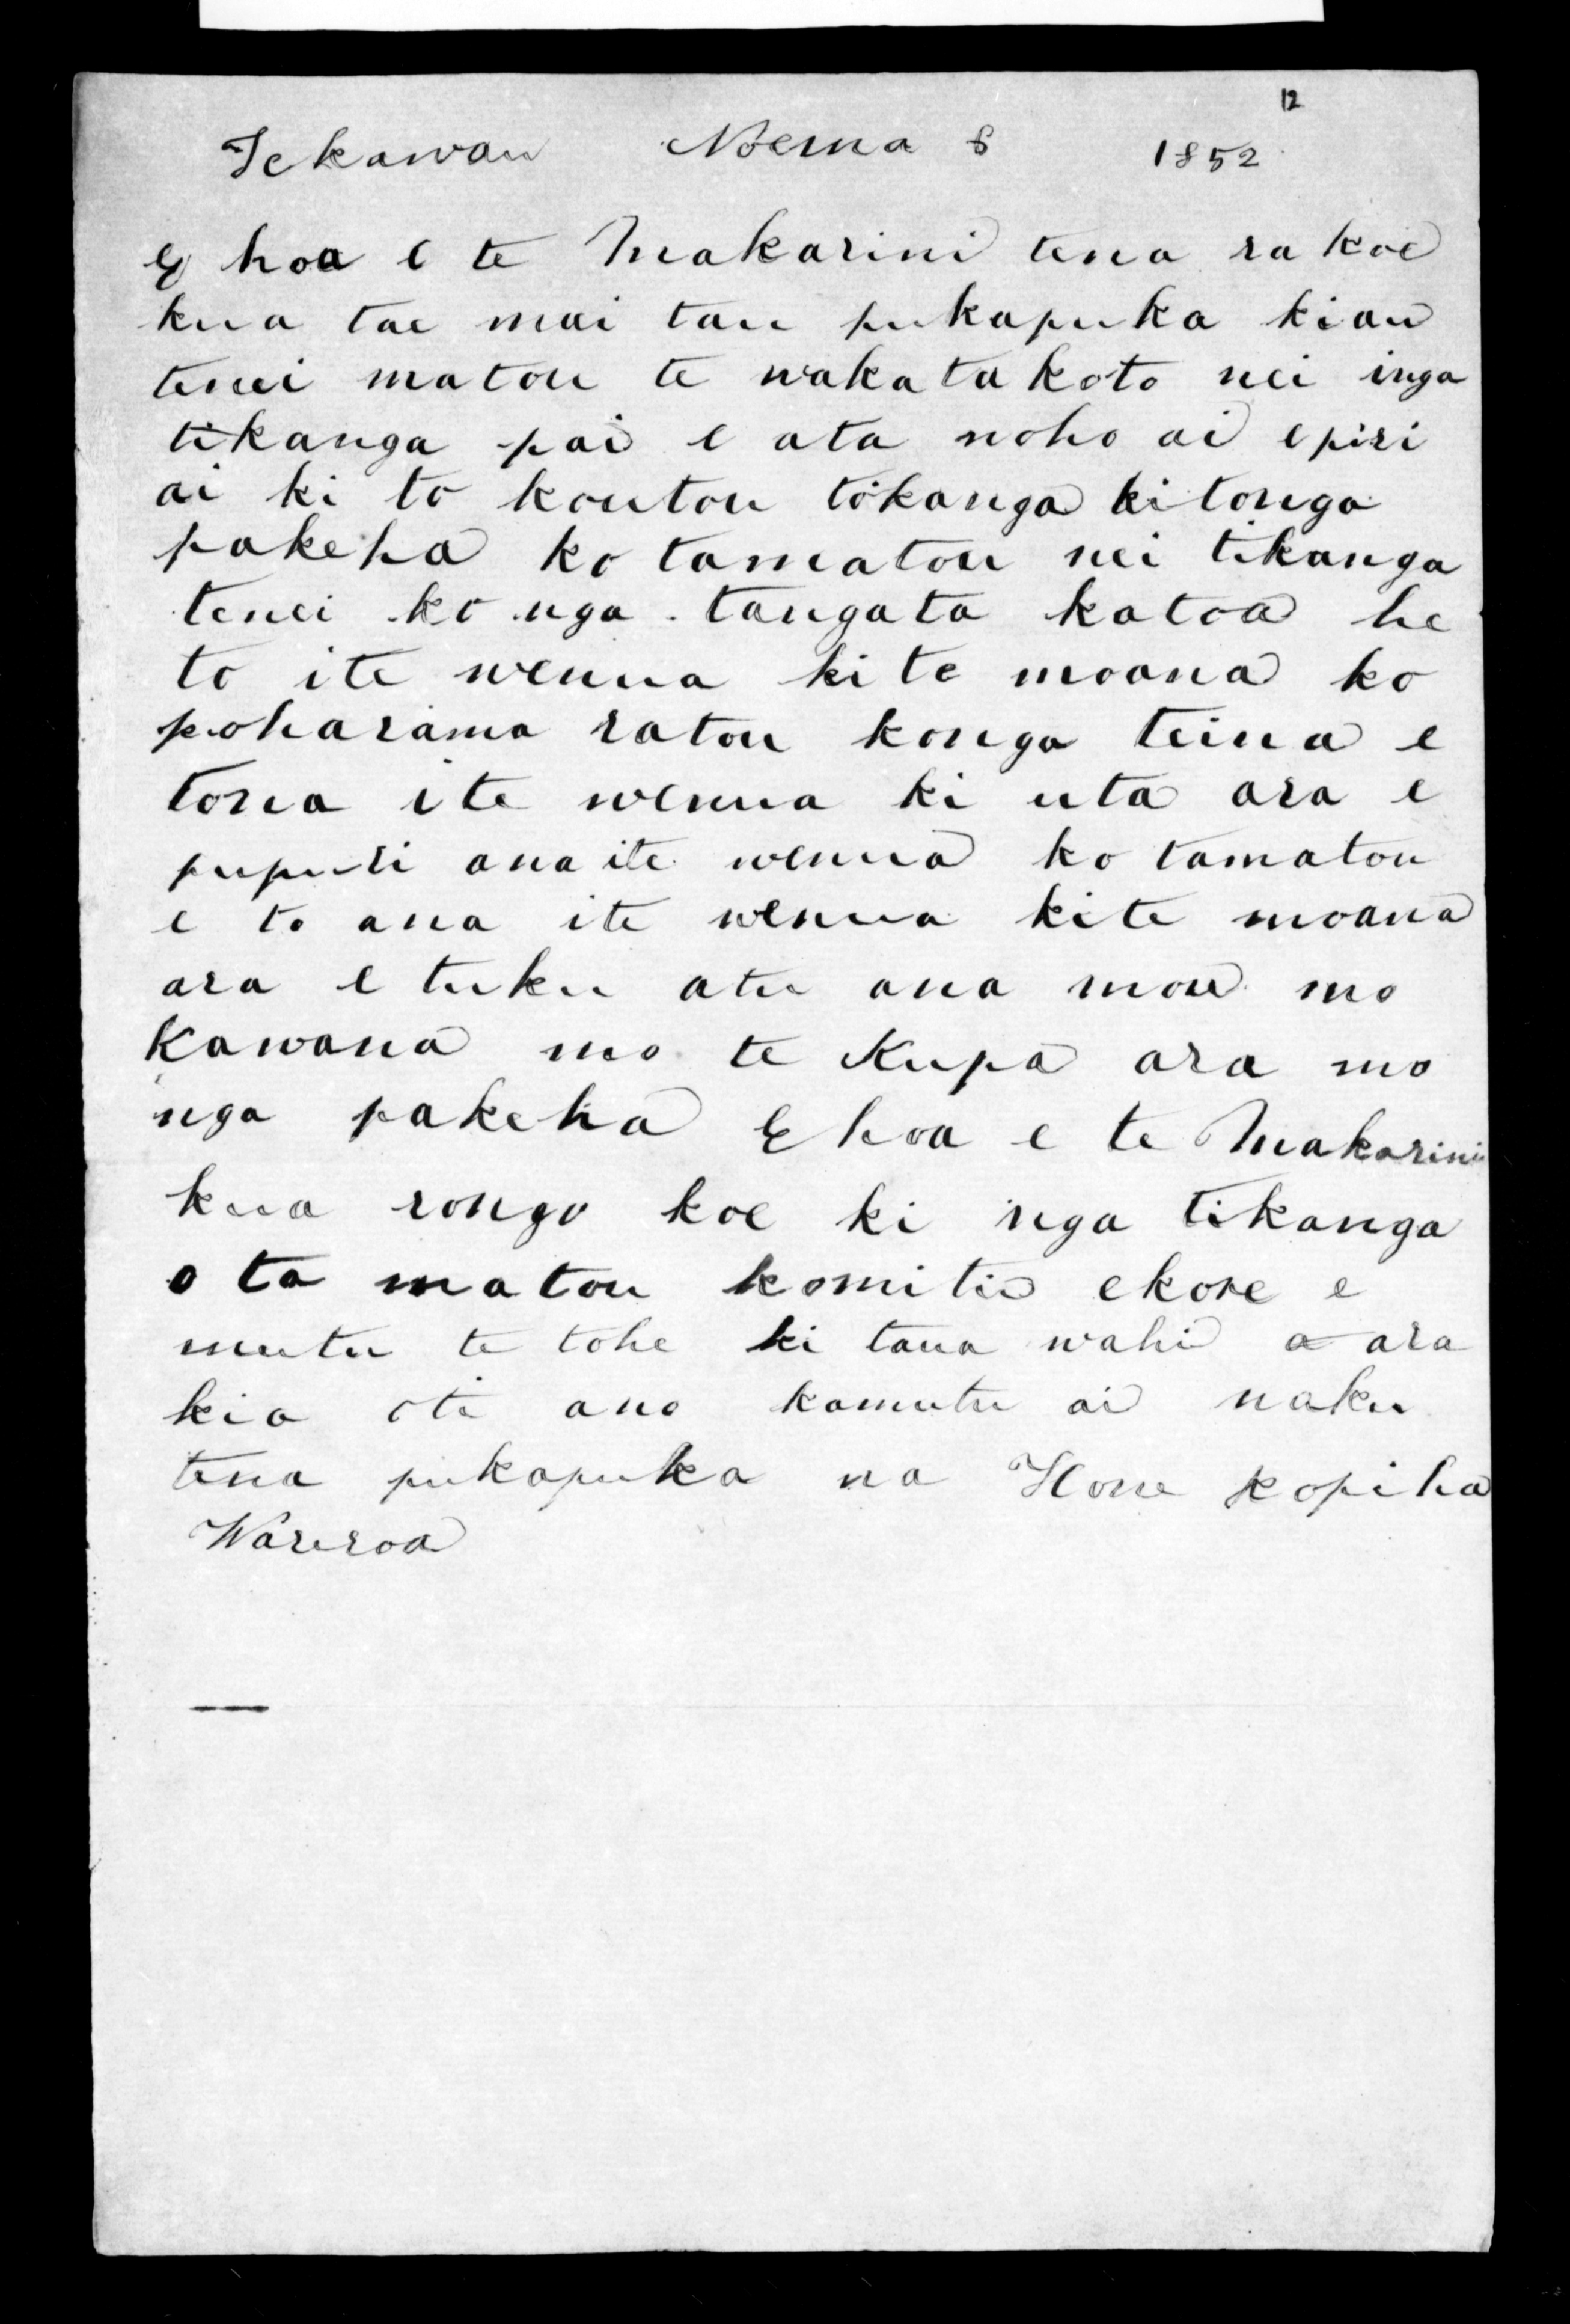 12
Tekawau Noema 8 1852
E hoa e te Makarini tena ra koe
kua tae mai tau pukapuka kiau
tenei matou te wakatakoto nei inga
tikanga pai e ata noho ai e piri
ai ki to koutou tikanga ki tonga
pakeha ko tamatou nei tikanga
tenei ko nga tangata katoa he
to ite wenua ki te moana ko
poharama ratou konga teina e
toua ite wenua ki uta ara e
pupuri ana ite wenua ko tamatou
e to ana ite wenua kite moana
ara e tuku atu ana mou mo
Kawana mo te Kupa ara mo
nga pakeha E hoa e te Makarini
kua rongo koe ki nga tikanga
o ta matou komiti ekore e
mutu te tohe ki taua wahi a ara
kia oti ano kamutu ai naku
tena pukapuka na Hone kopiha
Wareroa